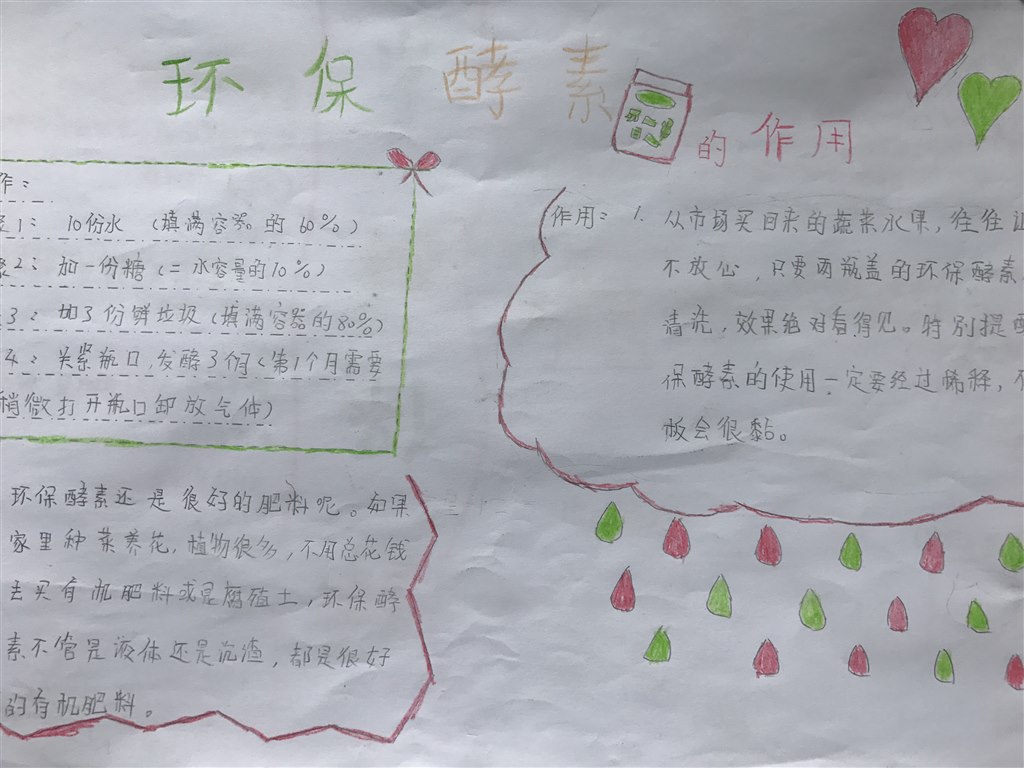 环保酵素
的作用
作：
1：10份水（填满容器的60%）
2：加一份糖（=水容量的10%）
3：加3份鲜垃圾（填满容器的80%）
4：关紧瓶口，发酵3个月（第1个月需要
稍微打开瓶口卸放气体）
环保酵素还是很好的肥料呢。如果
家里种菜养花，植物很多，不用总花钱
去买有机肥料或是腐殖土，环保酵
素不管是液体还是沉渣，都是很好
的有机肥料。
作用：1.从市场买回来的蔬菜水果，往往让
不放心，只要两瓶盖的环保酵素
清洗，效果绝对看得见。特别提醒
保酵素的使用一定要经过稀释，不
板会很黏。